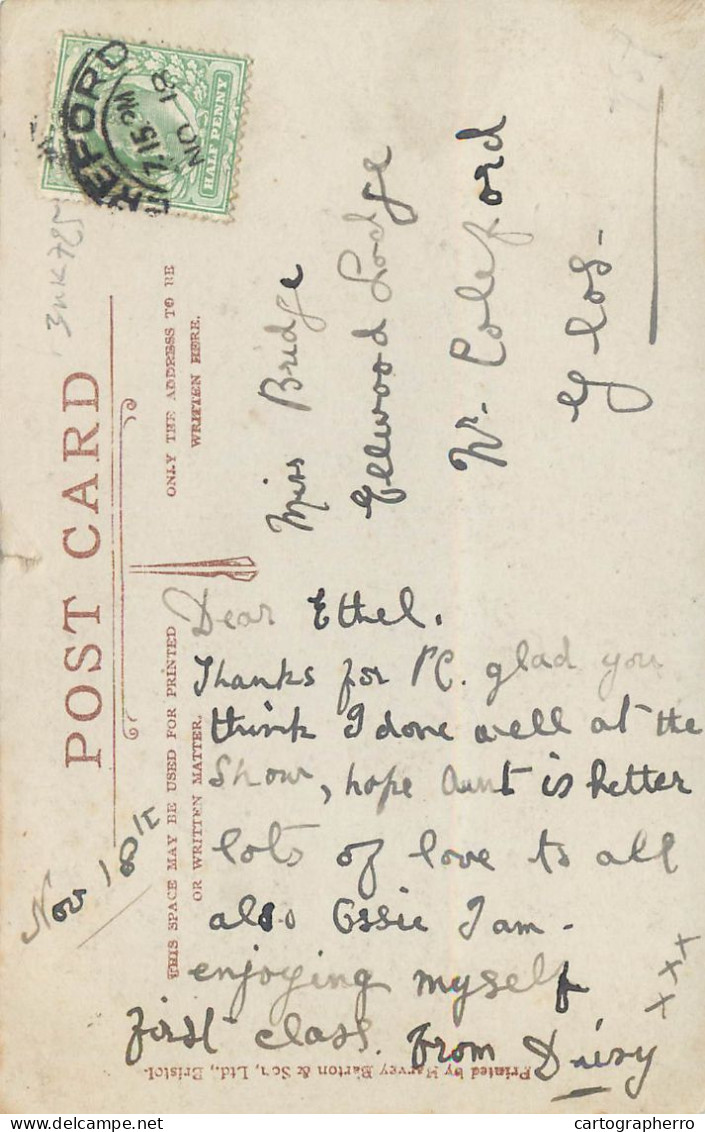 POST CARD
THIS SPACE MAY BE USED FOR PRINTED
OR WRITTEN MATTER.
ONLY THE ADDRESS TO BE
WRITTEN HERE.
HALF PENNY
EREFORD
7.15 PM
NO 18
Nov 18th
Miss Bridge
Ellwood Lodge
Nr. Coleford
Glos-
Dear Ethel.
Thanks for PC. glad you
think I done well at the
Show, hope Aunt is better
lots of love to all
also Ossie I am-
enjoying myself
first class. from Daisy
x x x
Printed by Harvey Barton & Son, Ltd., Bristol.
cartographerro